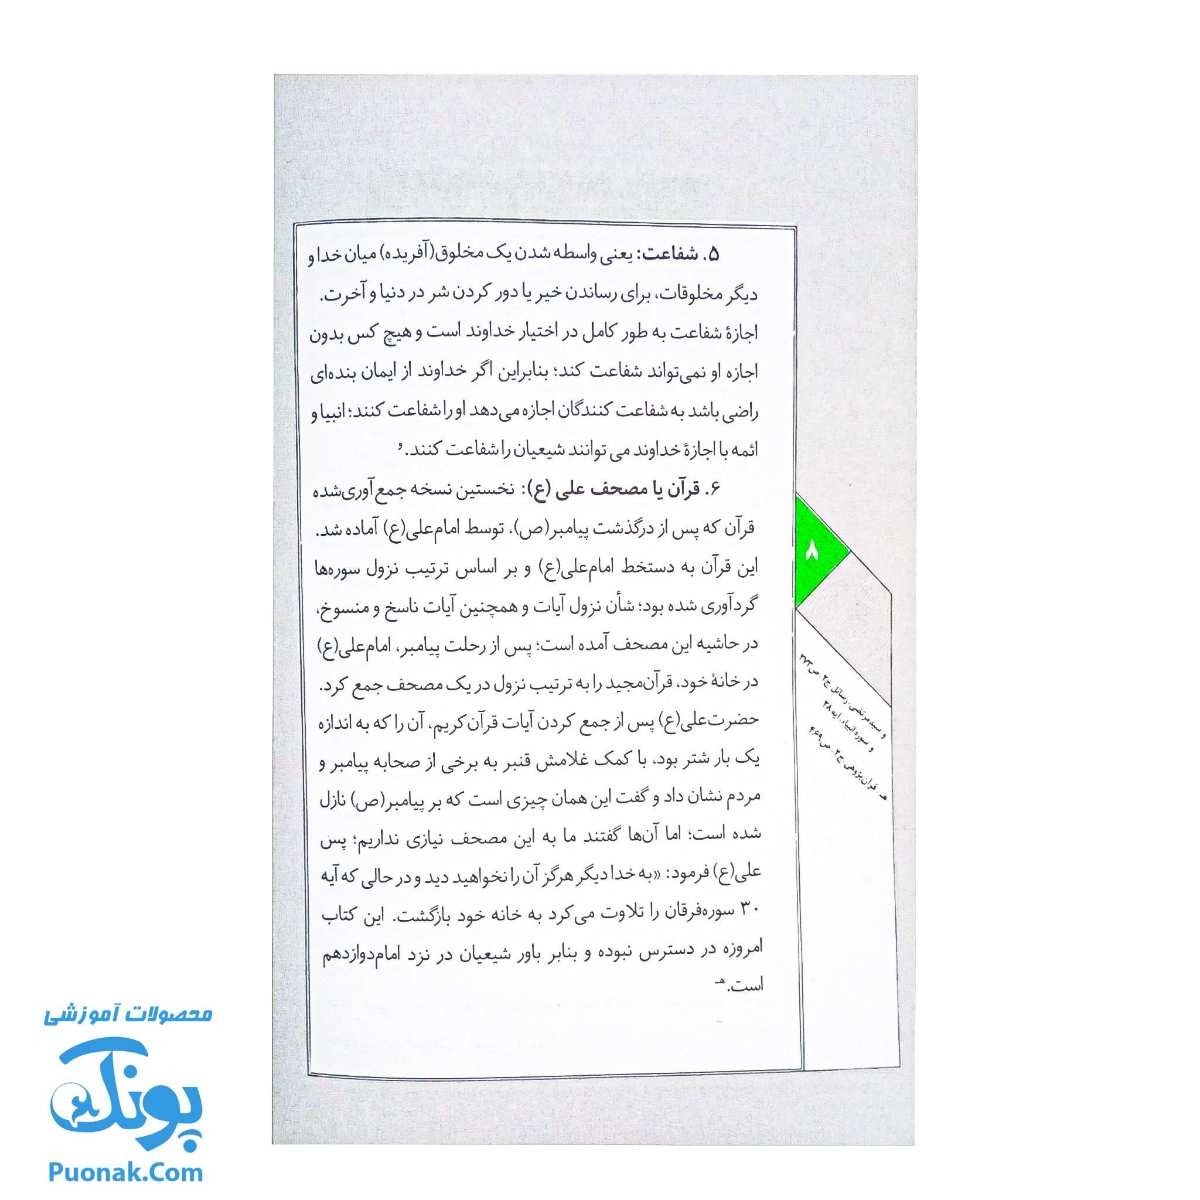 ۵. شفاعت: یعنی واسطه شدن یک مخلوق(آفریده) میان خدا و
دیگر مخلوقات، برای رساندن خیر یا دور کردن شر در دنیا و آخرت.
اجازهٔ شفاعت به طور کامل در اختیار خداوند است و هیچ کس بدون
اجازه او نمی‌تواند شفاعت کند؛ بنابراین اگر خداوند از ایمان بنده‌ای
راضی باشد به شفاعت کنندگان اجازه می‌دهد او را شفاعت کنند؛ انبیا و
ائمه با اجازهٔ خداوند می توانند شیعیان را شفاعت کنند.و
۶. قرآن یا مصحف علی (ع): نخستین نسخه جمع‌آوری‌شده
قرآن که پس از درگذشت پیامبر(ص)، توسط امام‌علی(ع) آماده شد.
این قرآن به دستخط امام‌علی(ع) و بر اساس ترتیب نزول سوره‌ها
گردآوری شده بود؛ شأن نزول آیات و همچنین آیات ناسخ و منسوخ،
در حاشیه این مصحف آمده است؛ پس از رحلت پیامبر، امام‌علی(ع)
در خانهٔ خود، قرآن‌مجید را به ترتیب نزول در یک مصحف جمع کرد.
حضرت‌علی(ع) پس از جمع کردن آیات قرآن‌کریم، آن را که به اندازه
یک بار شتر بود، با کمک غلامش قنبر به برخی از صحابه پیامبر و
مردم نشان داد و گفت این همان چیزی است که بر پیامبر(ص) نازل
شده است؛ اما آن‌ها گفتند ما به این مصحف نیازی نداریم؛ پس
علی(ع) فرمود: «به خدا دیگر هرگز آن را نخواهید دید و در حالی که آیه
۳۰ سوره‌فرقان را تلاوت می‌کرد به خانه خود بازگشت. این کتاب
امروزه در دسترس نبوده و بنابر باور شیعیان در نزد امام‌دوازدهم
است.هـ
۸
و سیدمرتضی، رسائل، ج۳، ص۲۷۳
و سوره انبیاء، آیه ۲۸
هـ قرآن‌پژوهی، ج۲، ص۴۶۹
محصولات آموزشی
پونک
Puonak.Com